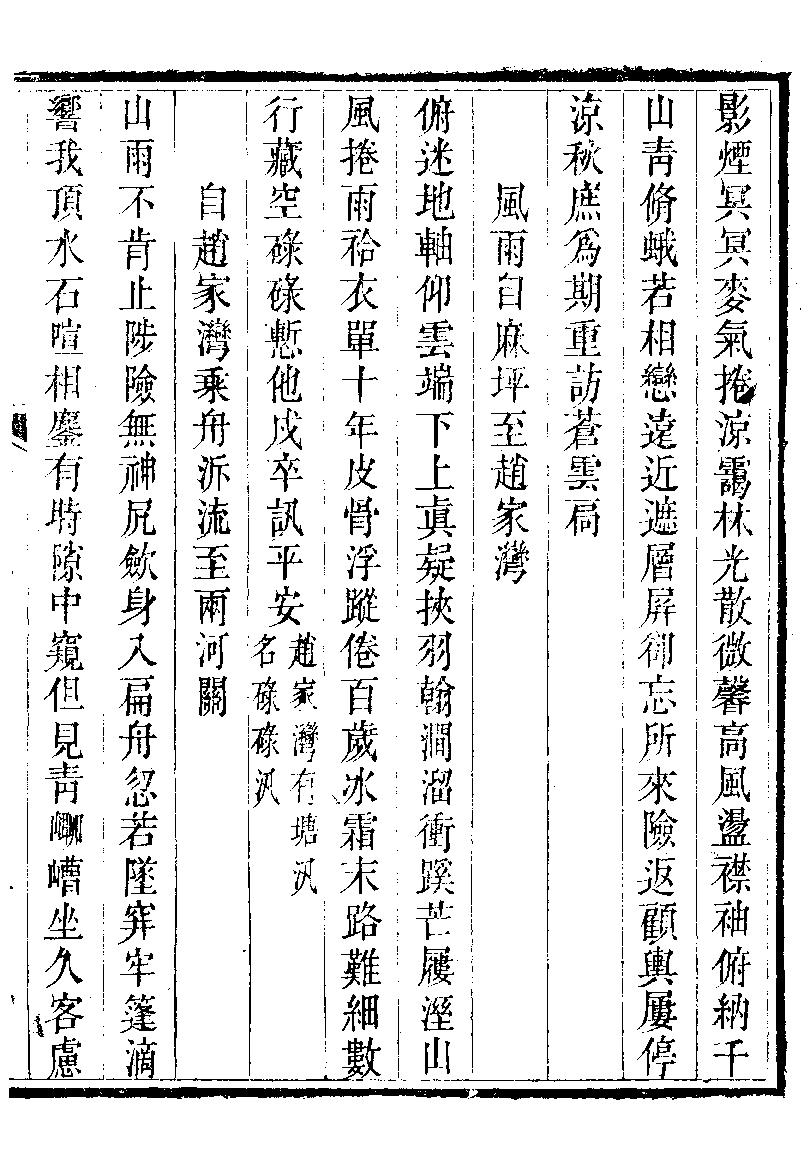 影煙冥冥麥氣捲涼靄林光散微馨高風盪襟袖俯納千
山青脩蛾若相戀遠近遮層屏卻忘所來險返顧輿屢停
涼秋庶爲期重訪蒼雲扃
風雨自麻坪至趙家灣
俯迷地軸仰雲端下上眞疑挾羽翰澗溜衝蹊芒屨溼山
風捲雨袷衣單十年皮骨浮蹤倦百歲冰霜末路難細數
行藏空碌碌慙他戍卒訊平安趙家灣有塘汛
名碌碌汛
自趙家灣乘舟泝流至兩河關
山雨不肯止陟險無神尻歛身入扁舟忽若墜穽牢篷滴
響我頂水石喧相鏖有時隙中窺但見靑嶆坐久客慮